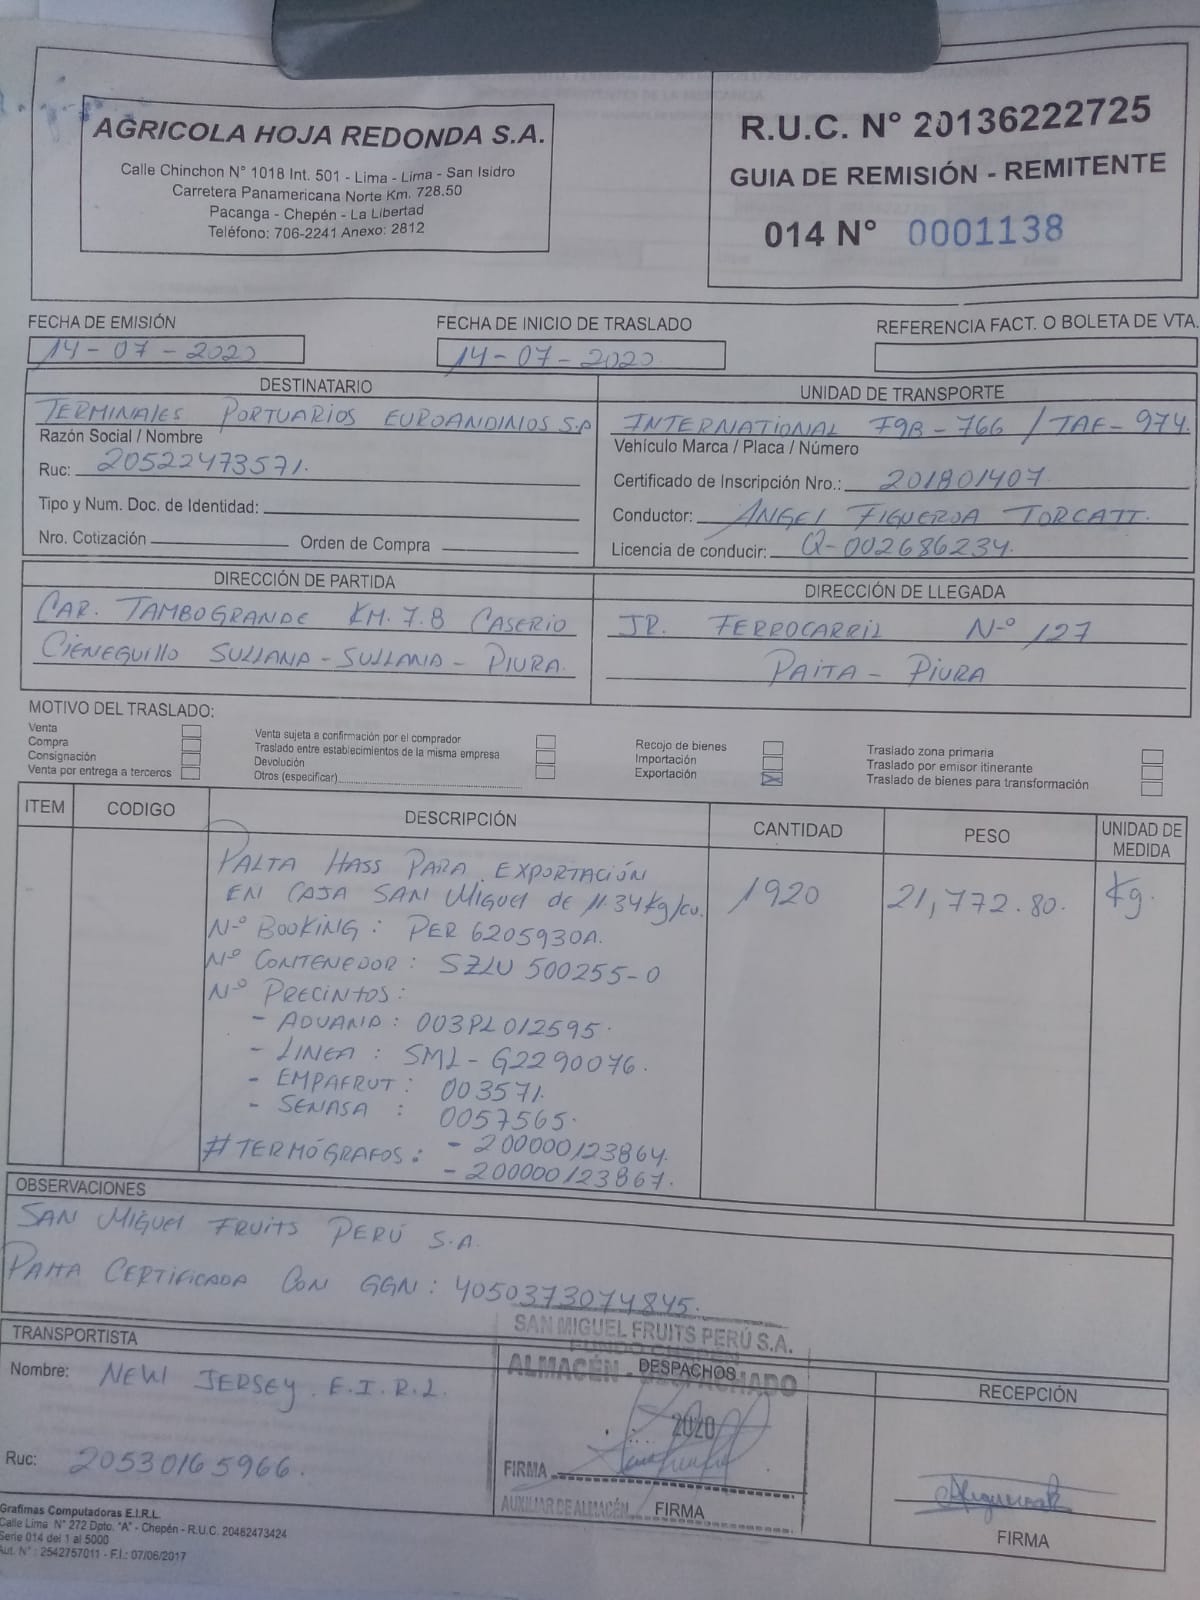 AGRICOLA HOJA REDONDA S.A.
Calle Chinchon N° 1018 Int. 501 - Lima - Lima - San Isidro
Carretera Panamericana Norte Km. 728.50
Pacanga - Chepén - La Libertad
Teléfono: 706-2241 Anexo: 2812
R.U.C. N° 20136222725
GUIA DE REMISIÓN - REMITENTE
014 N° 0001138
FECHA DE EMISIÓN
14-07-2020
FECHA DE INICIO DE TRASLADO
14-07-2020
REFERENCIA FACT. O BOLETA DE VTA.
DESTINATARIO
TERMINALES PORTUARIOS EUROANDINOS S.A
Razón Social / Nombre
Ruc: 20522473571.
Tipo y Num. Doc. de Identidad:
Nro. Cotización Orden de Compra
UNIDAD DE TRANSPORTE
INTERNATIONAL F9B-766 / TAF-974.
Vehículo Marca / Placa / Número
Certificado de Inscripción Nro.: 201801407
Conductor: ANGEL FIGUEROA TORCATT.
Licencia de conducir: Q-002686234.
DIRECCIÓN DE PARTIDA
CAR. TAMBOGRANDE KM. 7.8 CASERIO
CIENEGUILLO SULLANA - SULLANA - PIURA.
DIRECCIÓN DE LLEGADA
JR. FERROCARRIL Nº 127
PAITA - PIURA
MOTIVO DEL TRASLADO:
Venta
Compra
Consignación
Venta por entrega a terceros
Venta sujeta a confirmación por el comprador
Traslado entre establecimientos de la misma empresa
Devolución
Otros (especificar)
Recojo de bienes
Importación
Exportación
Traslado zona primaria
Traslado por emisor itinerante
Traslado de bienes para transformación
ITEM CODIGO DESCRIPCIÓN CANTIDAD PESO UNIDAD DE MEDIDA
PALTA HASS PARA EXPORTACIÓN
EN CAJA SAN MIGUEL de 11.34 Kg/cu. 1920 21,772.80. Kg.
Nº BOOKING: PER 6205930A.
Nº CONTENEDOR: SZLU 500255-0
Nº PRECINTOS:
- ADUANA: 003PL012595.
- LINEA: SML-G2290076.
- EMPAFRUT: 003571.
- SENASA: 0057565.
# TERMÓGRAFOS: - 200000123864.
- 200000123867.
OBSERVACIONES
SAN MIGUEL FRUITS PERÚ S.A.
PALTA CERTIFICADA CON GGN: 4050373074845.
TRANSPORTISTA
Nombre: NEW JERSEY E.I.R.L.
Ruc: 20530165966.
SAN MIGUEL FRUITS PERÚ S.A.
FUNDO CHEPEN
ALMACÉN - DESPACHADO
DESPACHOS
2020
FIRMA
AUXILIAR DE ALMACÉN
FIRMA
RECEPCIÓN
FIRMA
Grafimas Computadoras E.I.R.L.
Calle Lima N° 272 Dpto. "A" - Chepén - R.U.C. 20482473424
Serie 014 del 1 al 5000
Aut. N°: 2542757011 - F.I.: 07/06/2017